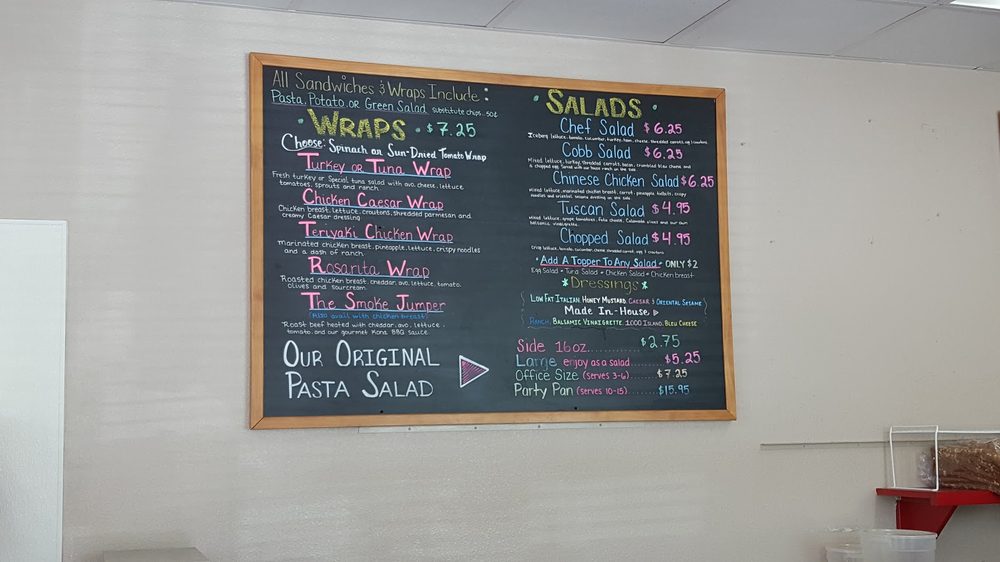 All Sandwiches & Wraps Include:
Pasta, Potato, or Green Salad substitute chips .50¢
WRAPS - $7.25
Choose: Spinach or Sun-Dried Tomato Wrap
Turkey or Tuna Wrap
Fresh turkey or Special tuna salad with avo, cheese, lettuce,
tomatoes, sprouts and ranch.
Chicken Caesar Wrap
Chicken breast, lettuce, croutons, shredded parmesan and
creamy Caesar dressing
Teriyaki Chicken Wrap
Marinated chicken breast, pineapple, lettuce, crispy noodles
and a dash of ranch.
Rosarita Wrap
Roasted chicken breast, cheddar, avo, lettuce, tomato,
olives and sourcream.
The Smoke Jumper
(Also avail with chicken breast)
Roast beef heated with cheddar, avo, lettuce,
tomato, and our gourmet Kona BBQ sauce.
Our Original
Pasta Salad
SALADS
Chef Salad $6.25
Iceberg lettuce, tomato, cucumber, turkey, ham, cheese, shredded carrots, egg & croutons
Cobb Salad $6.25
Mixed lettuce, turkey, shredded carrots, bacon, crumbled bleu cheese and
a chopped egg. Served with our house ranch on the side.
Chinese Chicken Salad $6.25
Mixed lettuce, marinated chicken breast, carrot, pineapple tidbits, crispy
noodles and oriental sesame dressing on the side.
Tuscan Salad $4.95
Mixed lettuce, grape tomatoes, feta cheese, Calamata olives and our own
balsamic vinaigrette.
Chopped Salad $4.95
Crisp lettuce, tomato, cucumber, cheese, shredded carrot, egg & croutons
• Add A Topper To Any Salad - ONLY $2
Egg Salad • Tuna Salad • Chicken Salad • Chicken breast
*Dressings*
Low Fat Italian, Honey Mustard, Caesar & Oriental Sesame
Made In-House
Ranch, Balsamic Vinaigrette, 1000 Island, Bleu Cheese
Side 16oz. .......... $2.75
Large enjoy as a salad ....... $5.25
Office Size (serves 3-6) ...... $7.25
Party Pan (serves 10-15) ....... $15.95